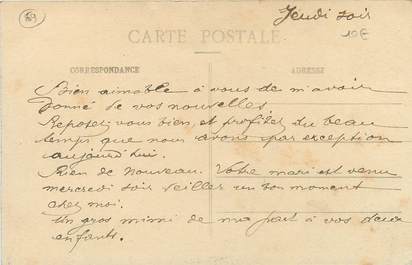 89
Jeudi soir
10€
CARTE POSTALE
CORRESPONDANCE
ADRESSE
Bien aimable à vous de m'avoir
donné de vos nouvelles.
Reposez-vous bien, et profitez du beau
temps que nous avons par exception
aujourd'hui.
Rien de Nouveau. Votre mari est venu
mercredi soir veiller un bon moment
chez moi.
Un gros mimi de ma part à vos deux
enfants.